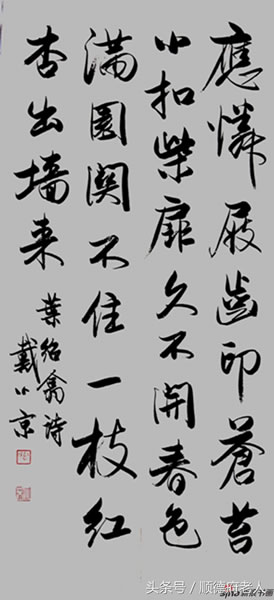 應憐屐齒印蒼苔
小扣柴扉久不開春色
滿園関不住一枝红
杏出墙来
葉紹翁诗
戴小京
头条号 / 顺德府老人